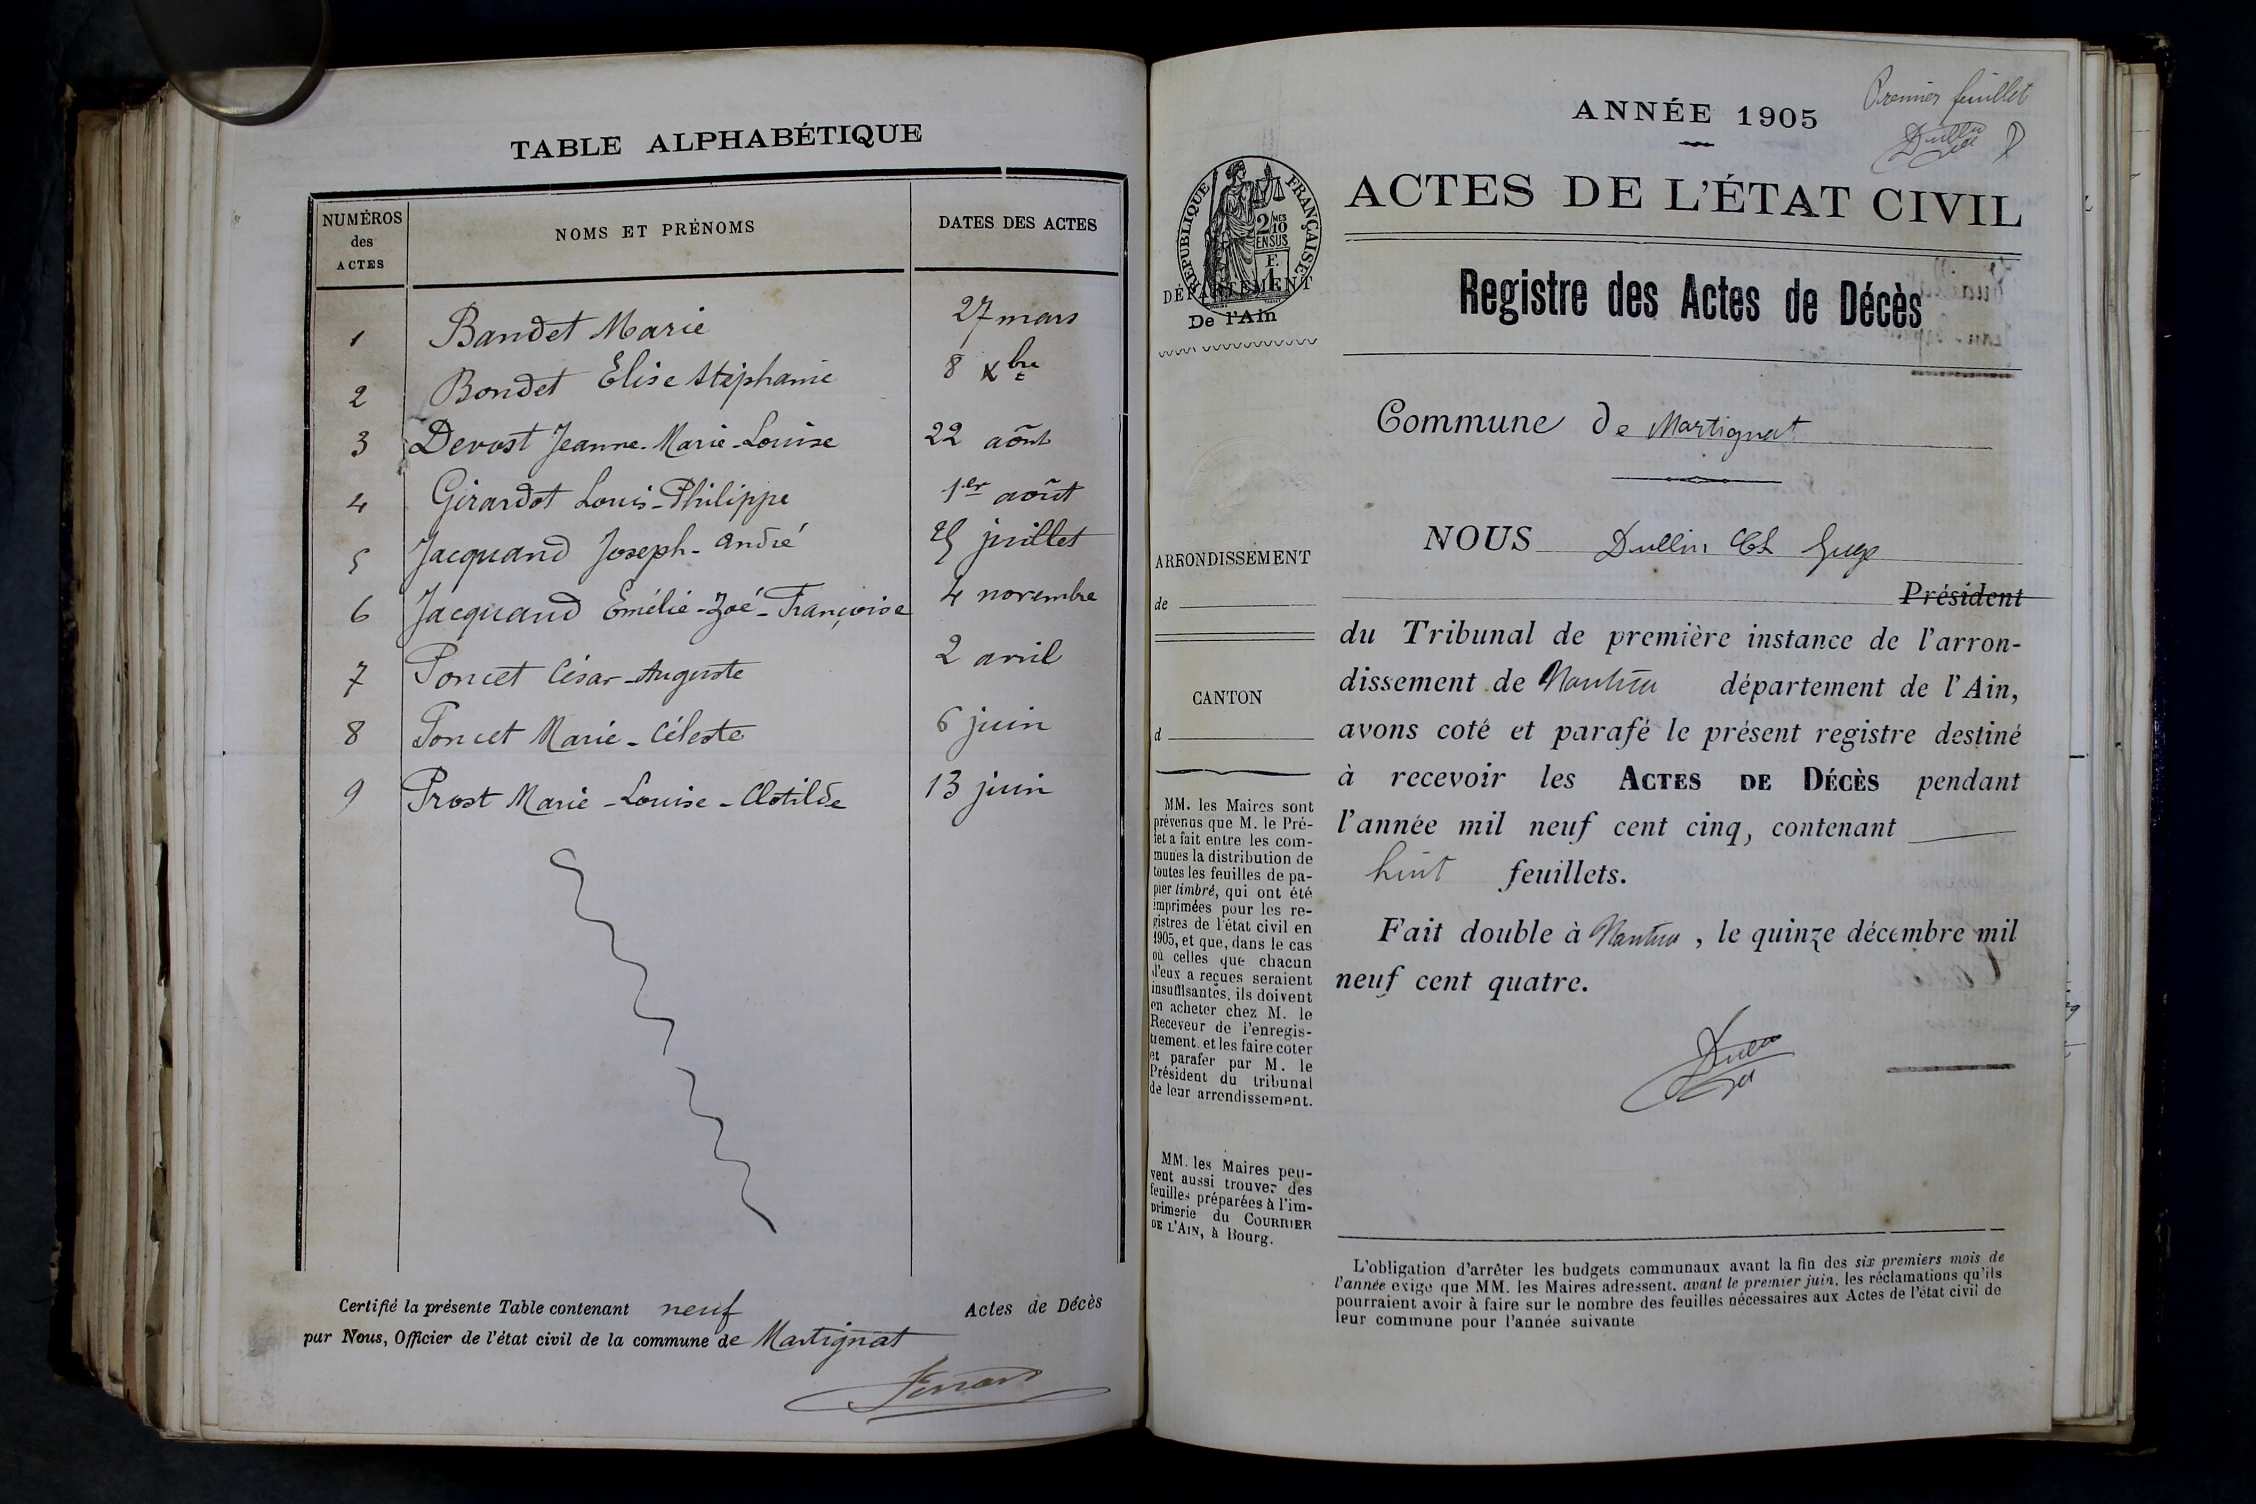 TABLE ALPHABÉTIQUE
NUMÉROS des ACTES
NOMS ET PRÉNOMS
DATES DES ACTES
1 Bandet Marie 27 mars
2 Bondet Elise Stéphanie 8 Xbre
3 Devost Jeanne-Marie-Louise 22 août
4 Girardot Louis-Philippe 1er août
5 Jacquand Joseph-André 25 juillet
6 Jacquand Emélie-Zoé-Françoise 4 novembre
7 Poncet César-Auguste 2 avril
8 Poncet Marie-Céleste 6 juin
9 Prost Marie-Louise-Clotilde 13 juin
Certifié la présente Table contenant neuf Actes de Décès
par Nous, Officier de l'état civil de la commune de Martignat
Premier feuillet
Dullin
ANNÉE 1905
ACTES DE L'ÉTAT CIVIL
RÉPUBLIQUE FRANÇAISE
2/10 MES
EN SUS
F. 1
DÉPARTEMENT
De l'Ain
Registre des Actes de Décès
Commune de Martignat
NOUS Dullin
Président
du Tribunal de première instance de l'arron-
dissement de Nantua département de l'Ain,
avons coté et parafé le présent registre destiné
à recevoir les ACTES DE DÉCÈS pendant
l'année mil neuf cent cinq, contenant
huit feuillets.
Fait double à Nantua, le quinze décembre mil
neuf cent quatre.
Dullin
ARRONDISSEMENT
de
CANTON
d
MM. les Maires sont
prévenus que M. le Pré-
fet a fait entre les com-
munes la distribution de
toutes les feuilles de pa-
pier timbré, qui ont été
imprimées pour les re-
gistres de l'état civil en
1905, et que, dans le cas
où celles que chacun
d'eux a reçues seraient
insuffisantes, ils doivent
en acheter chez M. le
Receveur de l'enregis-
trement et les faire coter
et parafer par M. le
Président du tribunal
de leur arrondissement.
MM. les Maires peu-
vent aussi trouver des
feuilles préparées à l'im-
primerie du COURRIER
DE L'AIN, à Bourg.
L'obligation d'arrêter les budgets communaux avant la fin des six premiers mois de
l'année exige que MM. les Maires adressent, avant le premier juin, les réclamations qu'ils
pourraient avoir à faire sur le nombre des feuilles nécessaires aux Actes de l'état civil de
leur commune pour l'année suivante